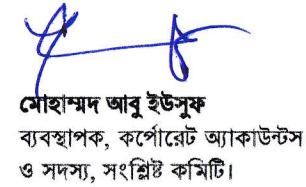 মোহাম্মদ আবু ইউসুফ
ব্যবস্থাপক, কর্পোরেট অ্যাকাউন্টস
ও সদস্য, সংশ্লিষ্ট কমিটি।